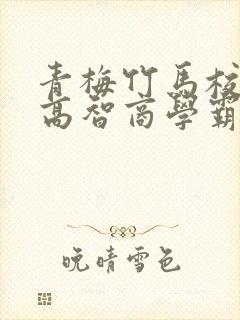 青梅竹馬校
高智商學霸
晚晴雪色